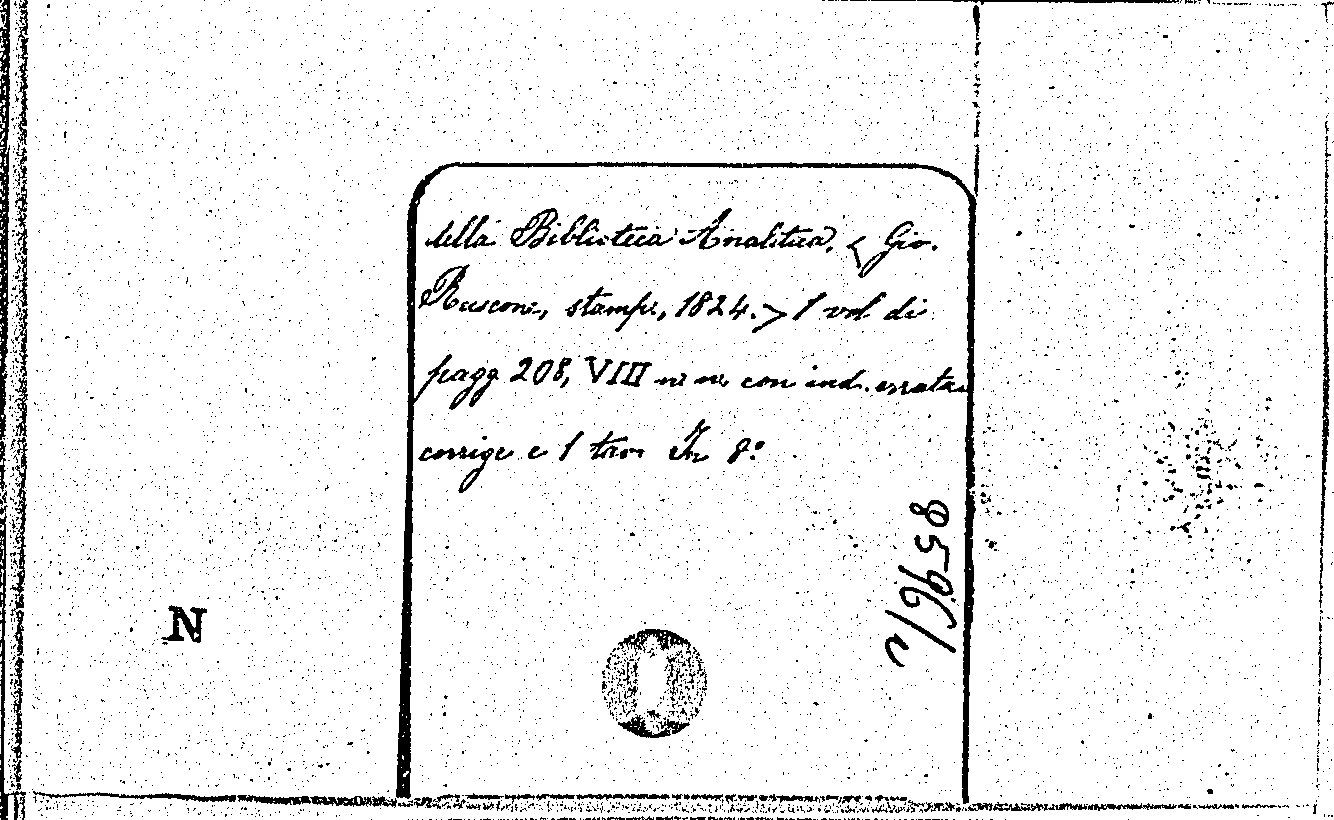 della Biblioteca Analitica. < Gio.
Rusconi, stamp., 1824. > 1 vol di
pagg 208, VIII nn nn con ind. errata
corrige e 1 tav In 8°
8596/
N